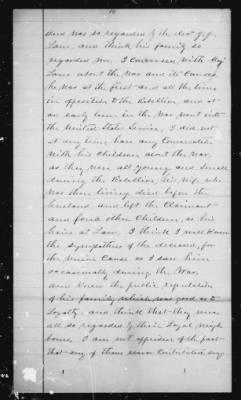 and was so regarded by the
Lane, and think his family so
regarded him. I conversed with Mr
Lane about the war and its Causes
he was at the first and all the time
in opposition to the Rebellion and at
an early time in the War went into
the United States Service, I did not
at any time have any Conversation
with his Children about the War.
as they were all young and small
during the Rebellion, his wife who
was then living died before the
husband and left the Claimant
and four other Children, as his
heirs at Law. I think I well know
the sympathies of the deceased, for
the Union Cause as I saw him
occasionally during the War
and knew the public reputation
of his family which was good as to
Loyalty. and think that they were
all so regarded by their Loyal neigh
bours, I am not apprised of the fact
that any of them ever Contributed any